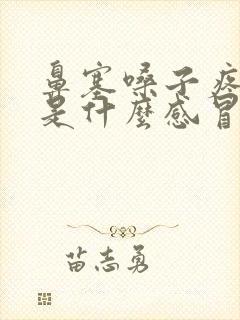 鼻塞嗓子疼
是什麼感冒
苗志勇